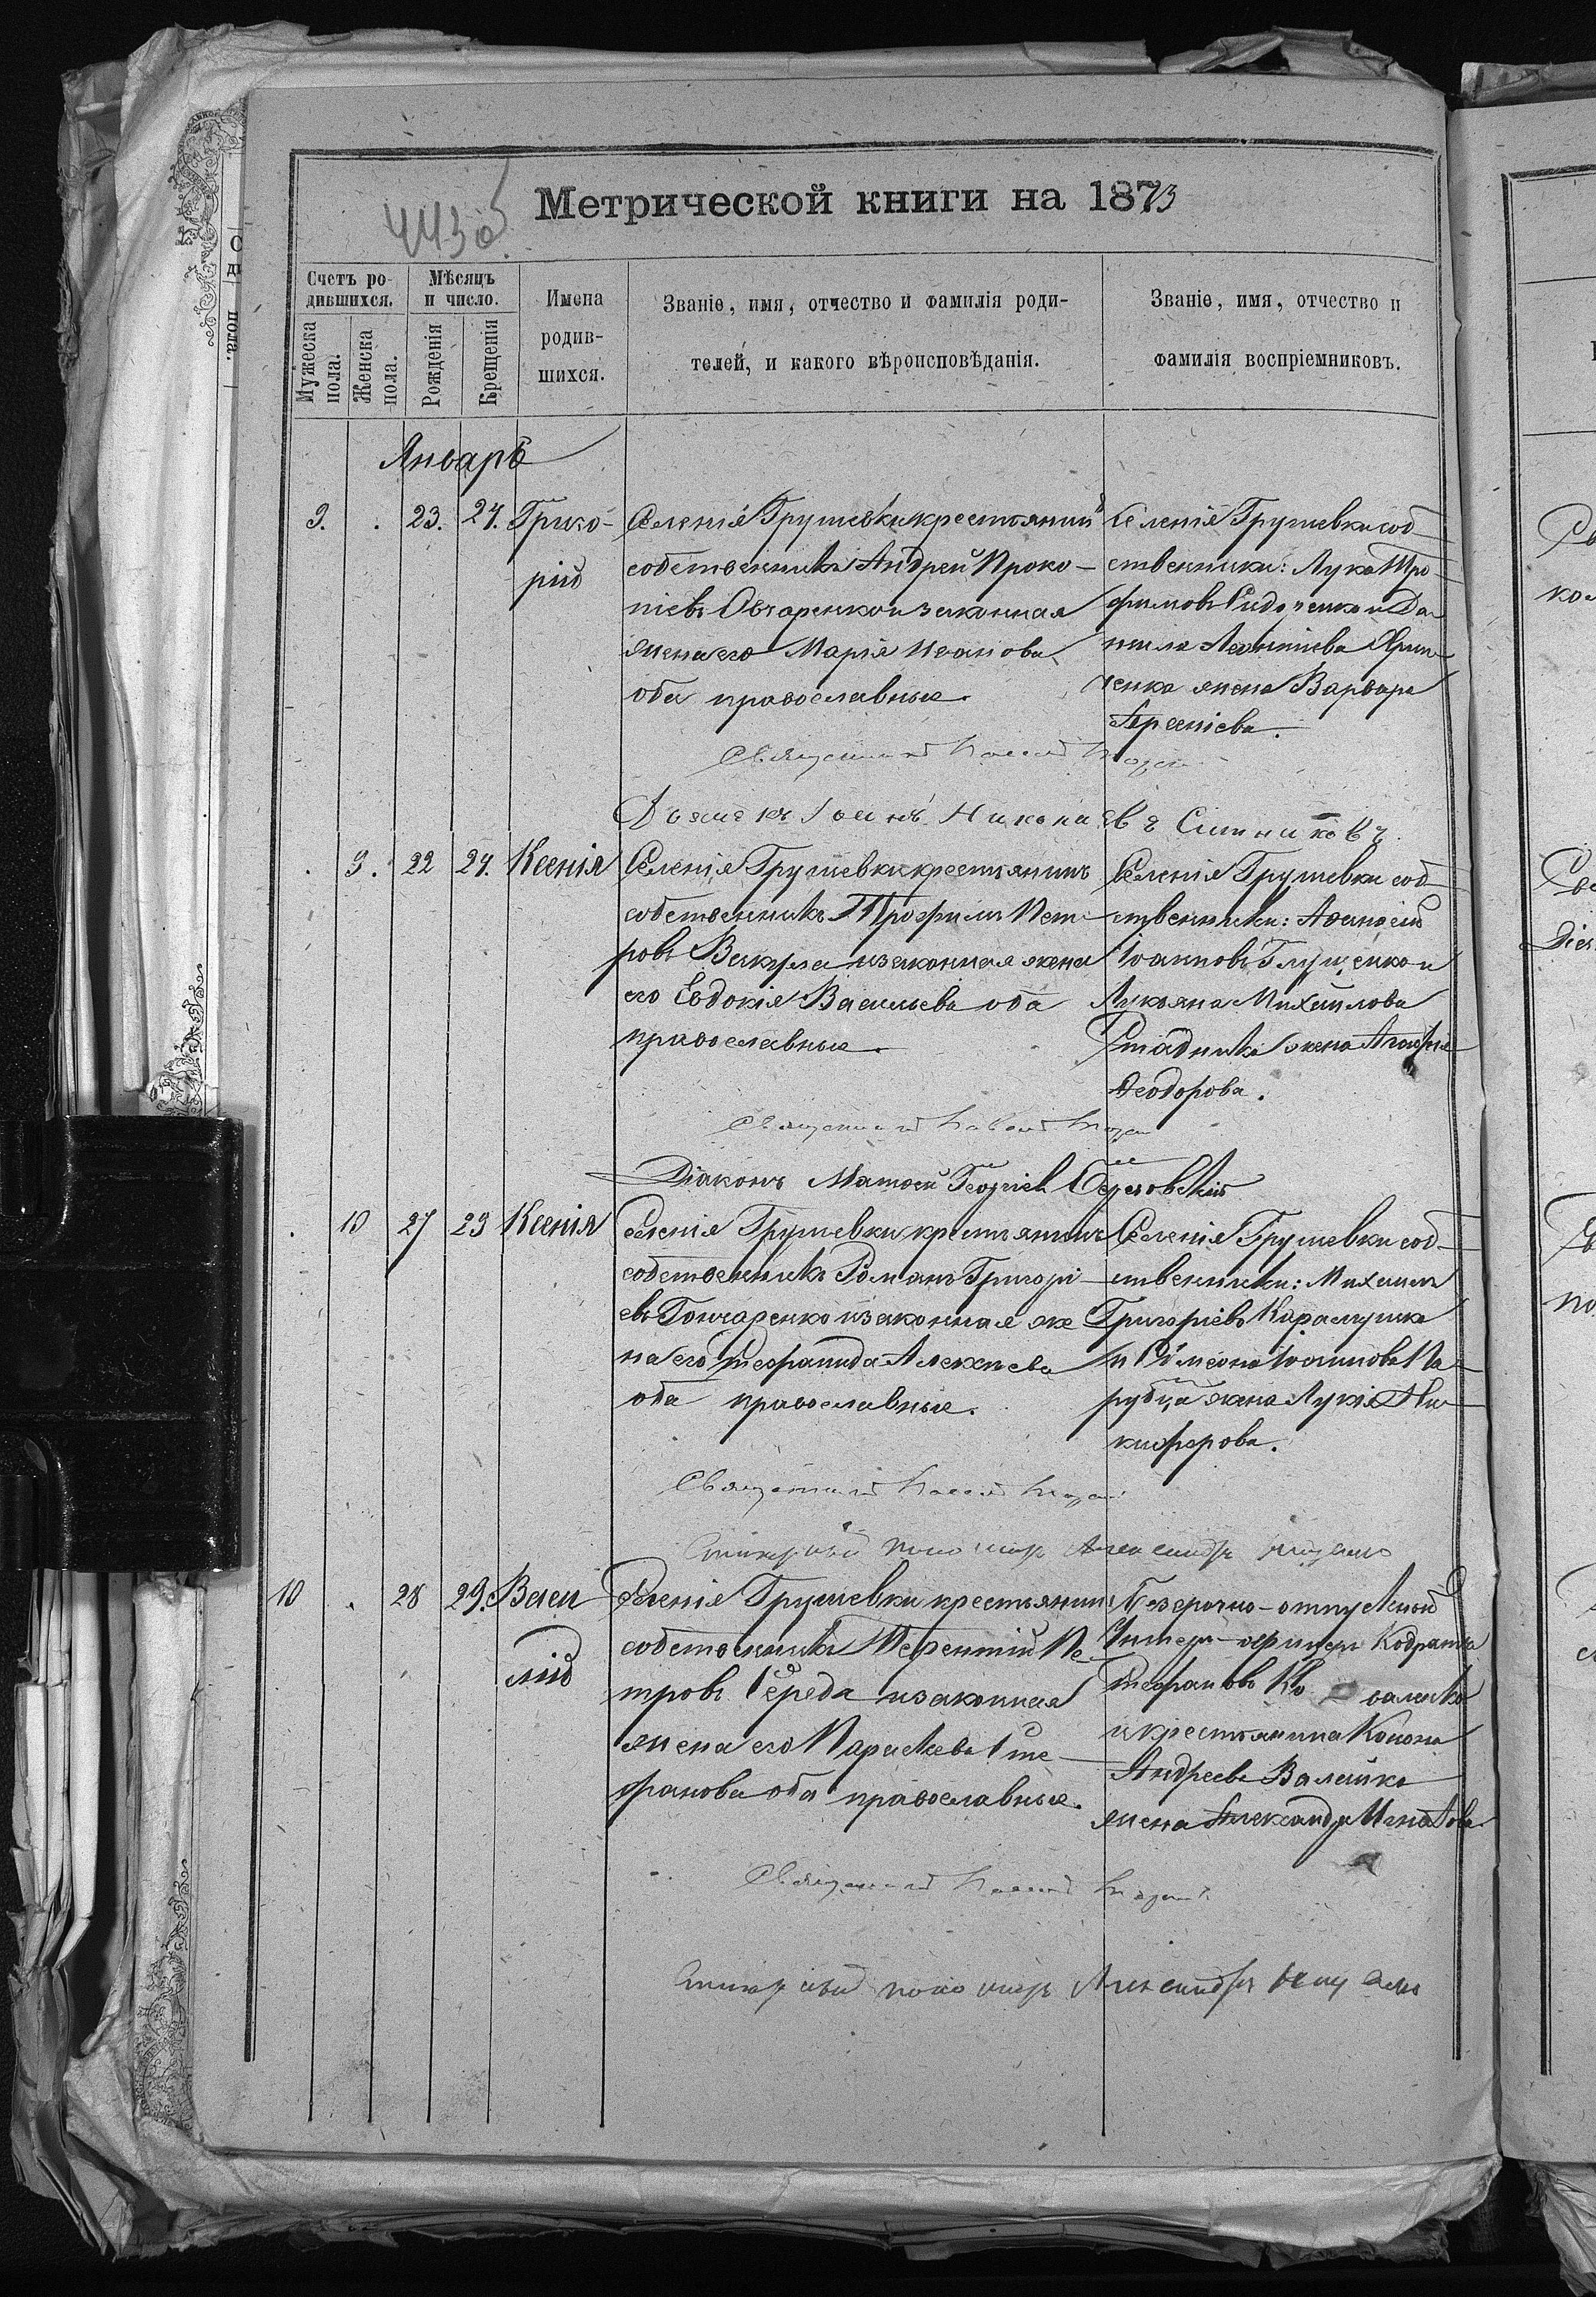 443 об
Метрической книги на 1873
Счетъ ро-
дившихся.
Мужеска пола.
Женска пола.
Мѣсяцъ
и число.
Рожденія
Крещенія
Имена
родив-
шихся.
Званіе, имя, отчество и фамилія роди-
телей, и какого вѣроисповѣданія.
Званіе, имя, отчество и
фамилія воспріемниковъ.
Январь
9. . 23. 27. Григо-
рій
Селенія Грушевки крестьянинъ
собственникъ Андрей Проко-
піевъ Овчаренко и законная
жена его Марія Иванова
оба православные.
Селенія Грушевки соб-
ственники: Лука Тро-
фимовъ Сидоренко и Да-
ниила Леонтіева Хрип-
ченка жена Варвара
Арсеніева.
Священникъ Павелъ
Дьячекъ Іоаннъ Николаевъ Ситниковъ.
. 9. 22 27. Ксенія
Селенія Грушевки крестьянинъ
собственникъ Трофимъ Пет-
ровъ Вакула и законная жена
его Евдокія Васильева оба
православные.
Селенія Грушевки соб-
ственники: Афанасій
Іоанновъ Глущенко и
Лукьяна Михайлова
Стадника жена Агафія
Феодорова.
Священникъ Павелъ
Діаконъ Матфей Георгіев
. 10 27 29 Ксенія
Селенія Грушевки крестьянинъ
собственникъ Романъ Григорі-
евъ Гончаренко и законная же
на его Стефанида Алексѣева
оба православные.
Селенія Грушевки соб-
ственники: Михаилъ
Григоріевъ Карамушка
и Симеона Іоаннова Па-
рубца жена Лукія Ни-
кифорова.
Священникъ Павелъ
пономарь Александръ
10 . 28 29. Васи
лій
Селенія Грушевки крестьянинъ
собственникъ Терентій Пе-
тровъ Середа и законная
жена его Параскева Сте-
фанова оба православные.
Безсрочно-отпускный
Унтеръ-офицеръ Кодратъ
Стефановъ Ко валенко
и крестьянина Конона
Андреева Валейка
жена Александра Игнатова.
Священникъ Павелъ
пономарь Александръ